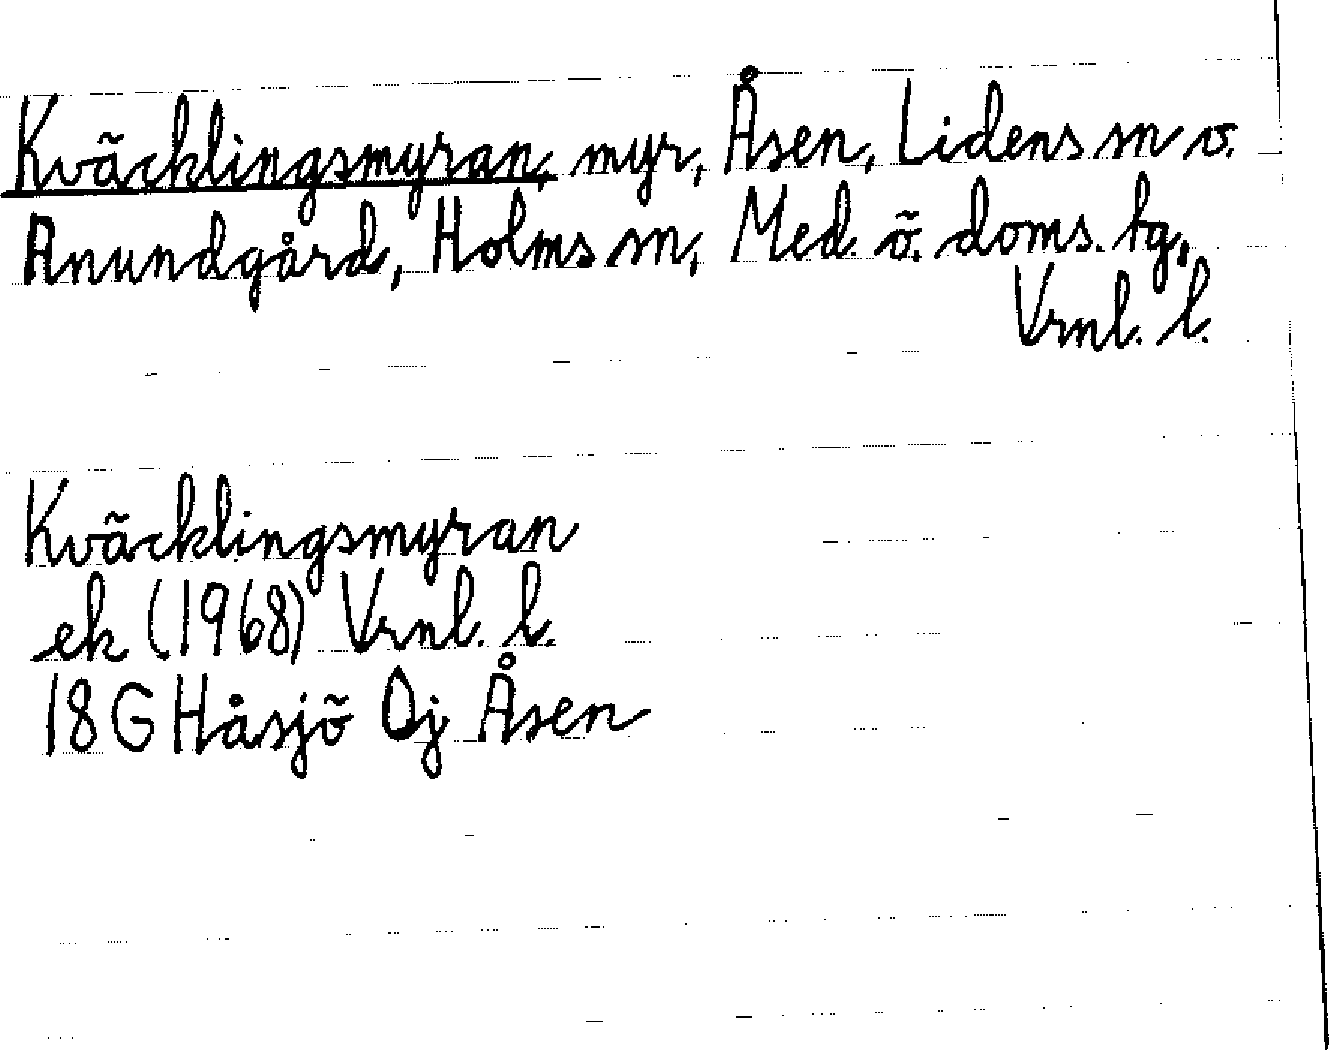 Kväcklingsmyran, myr, Åsen, Lidens sn o.
Anundgård, Holms sn, Med. ö. doms. tg,
Vrnl. l.
Kväcklingsmyran
ek (1968) Vrnl. l.
18 G Håsjö Oj Åsen